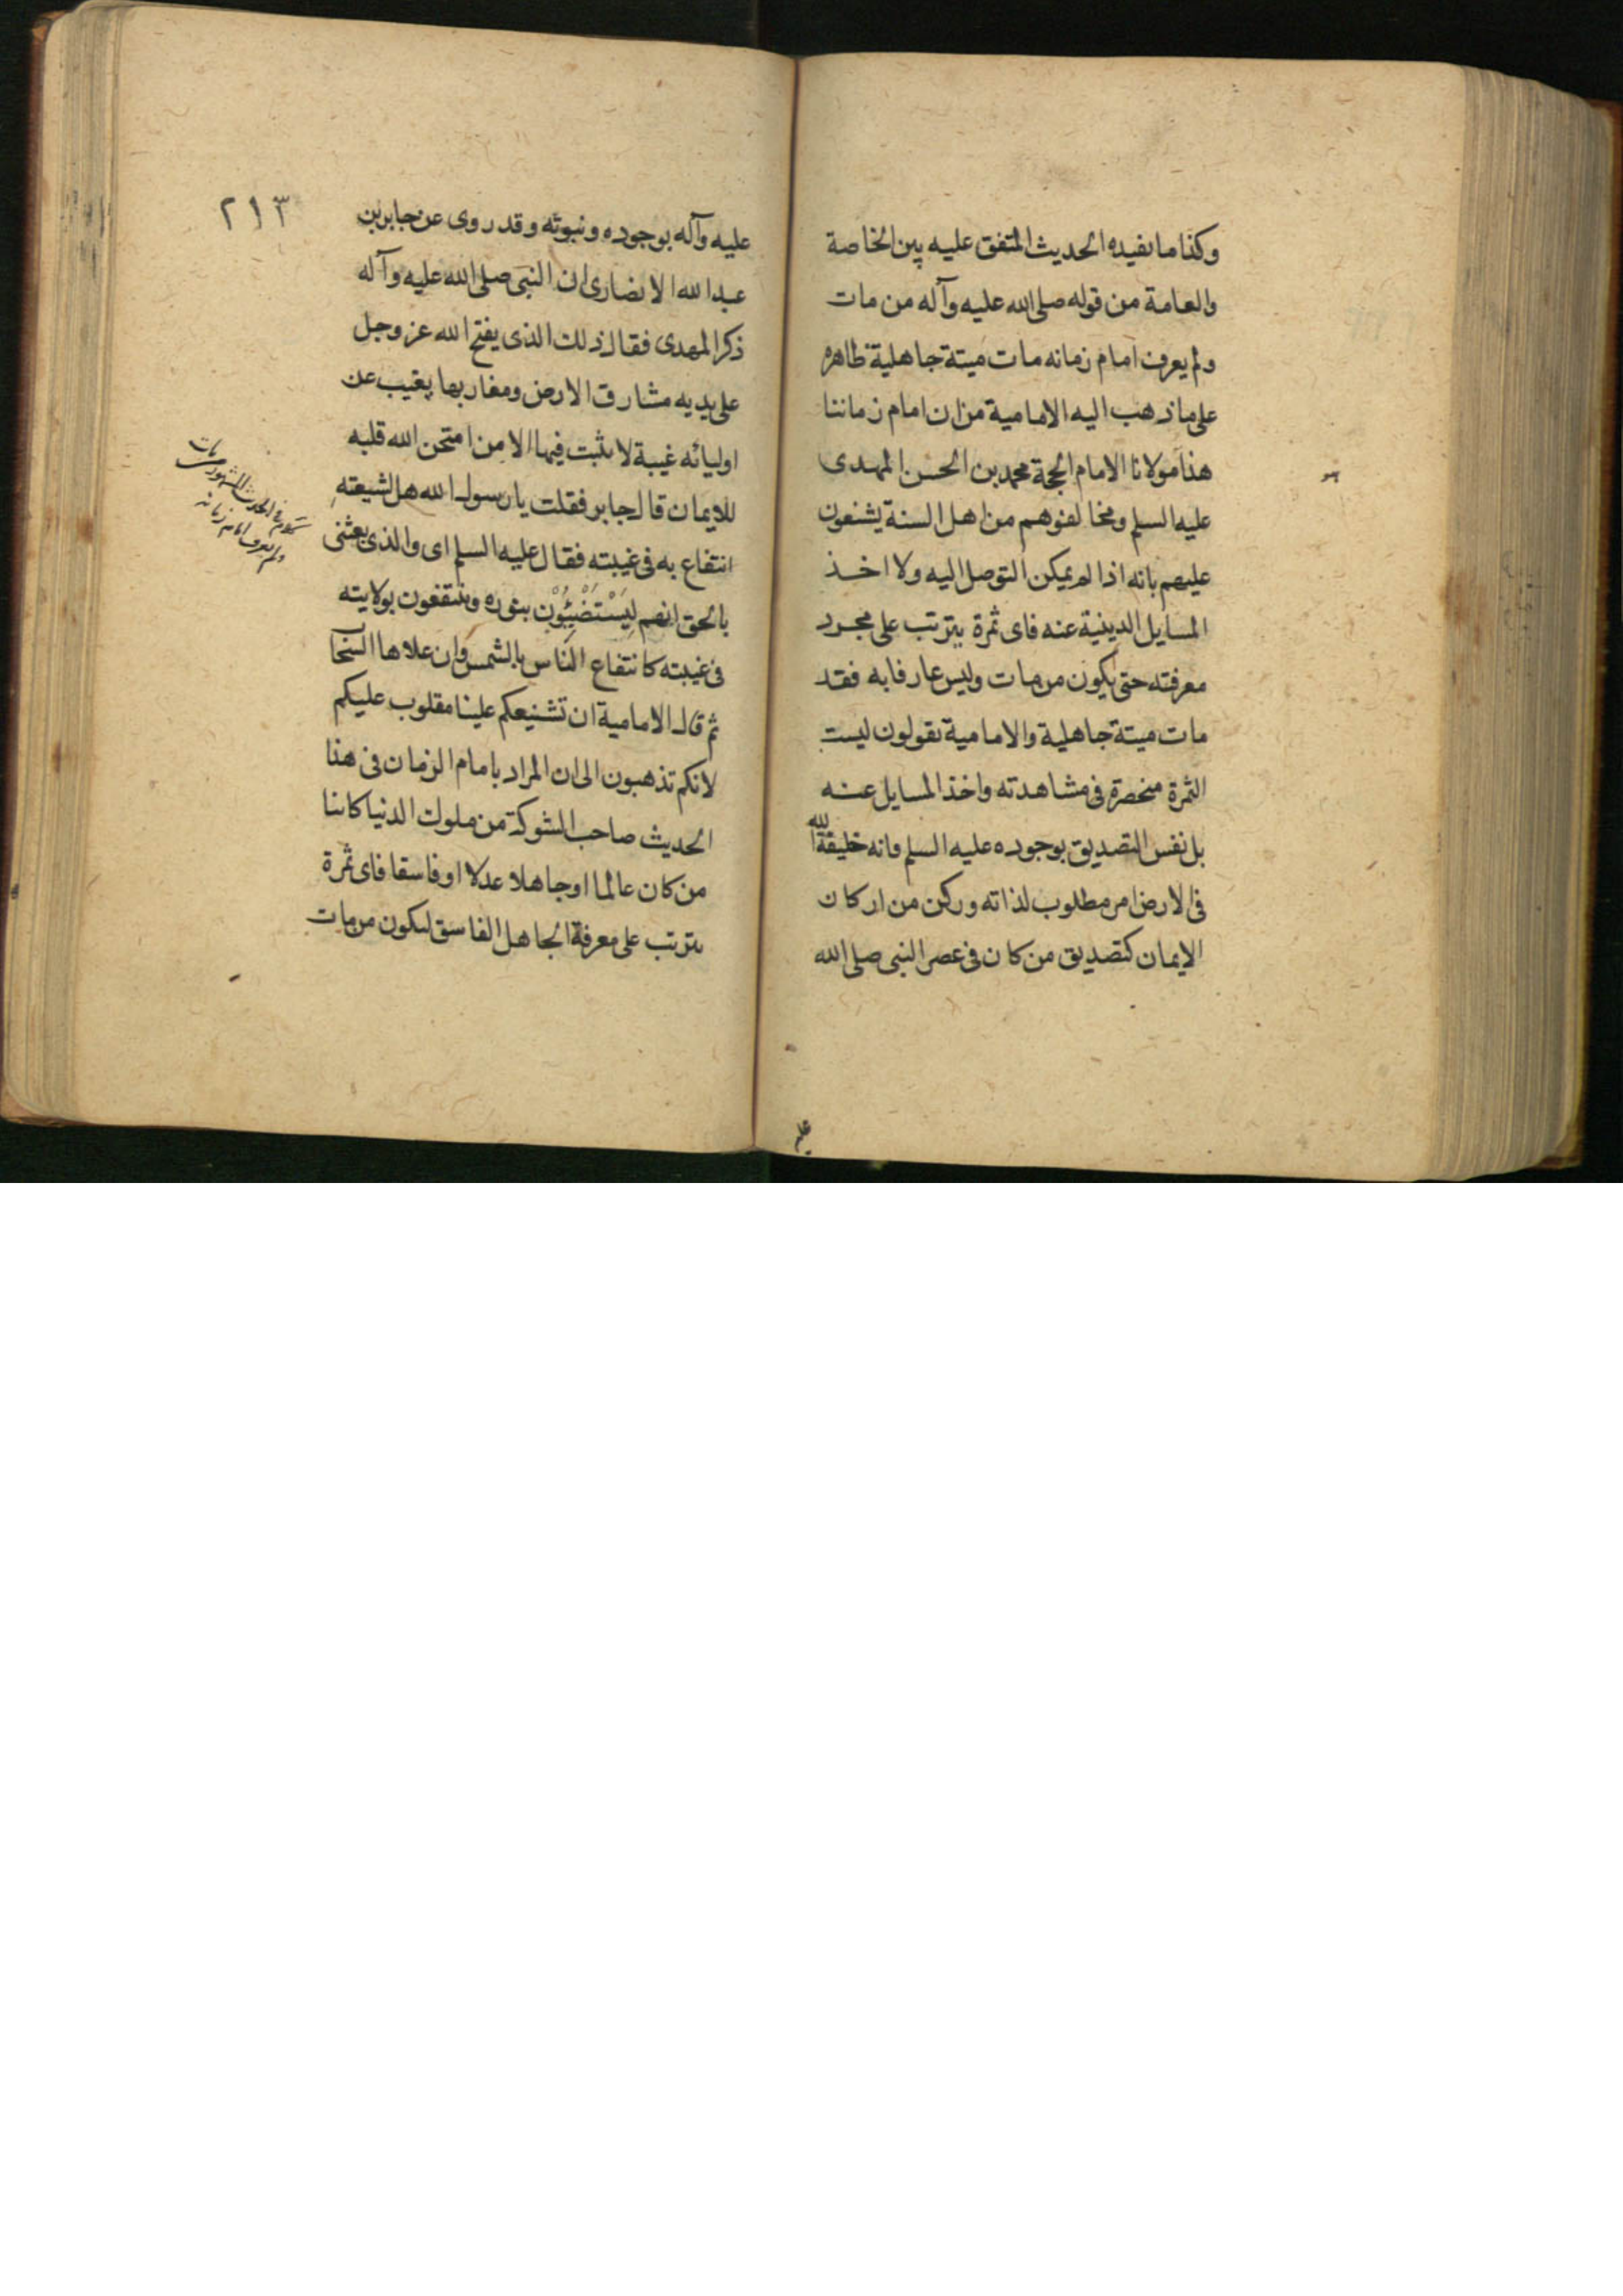 وكذا ما يفيده الحديث المتفق عليه بين الخاصة
والعامة من قوله صلى الله عليه وآله من مات
ولم يعرف امام زمانه مات ميتة جاهلية ظاهره
على ما ذهب اليه الامامية من ان امام زماننا
هذا مولانا الامام الحجة محمد بن الحسن المهدى
عليه السلم ومخالفوهم من اهل السنة يشنعون
عليهم بانه اذا لم يمكن التوصل اليه ولا اخذ
المسايل الدينية عنه فاى ثمرة يترتب على مجرد
معرفته حتى يكون من مات وليس عارفا به فقد
مات ميتة جاهلية والامامية يقولون ليست
الثمرة منحصرة فى مشاهدته واخذ المسايل عنه
بل نفس التصديق بوجوده عليه السلم وانه خليفة الله
فى الارض امر مطلوب لذاته وركن من اركان
الايمان كتصديق من كان فى عصر النبى صلى الله
٢١٣
عليه وآله بوجوده ونبوته وقد روى عن جابر بن
عبد الله الانصارى ان النبى صلى الله عليه وآله
ذكر المهدى فقال ذلك الذى يفتح الله عز وجل
على يديه مشارق الارض ومغاربها يغيب عن
اوليائه غيبة لا يثبت فيها الا من امتحن الله قلبه
للايمان قال جابر فقلت يا رسول الله هل لشيعته
انتفاع به فى غيبته فقال عليه السلم اى والذى بعثنى
بالحق انهم لَيَسْتَضْيِئُوْن بنوره وينتفعون بولايته
فى غيبته كانتفاع الناس بالشمس وان علاها السحاب
ثم قال الامامية ان تشنيعكم علينا مقلوب عليكم
لانكم تذهبون الى ان المراد بامام الزمان فى هذا
الحديث صاحب الشوكة من ملوك الدنيا كائنا
من كان عالما او جاهلا عدلا او فاسقا فاى ثمرة
يترتب على معرفة الجاهل الفاسق ليكون من مات
الحديث المشهور من مات
ولم يعرف امام زمانه